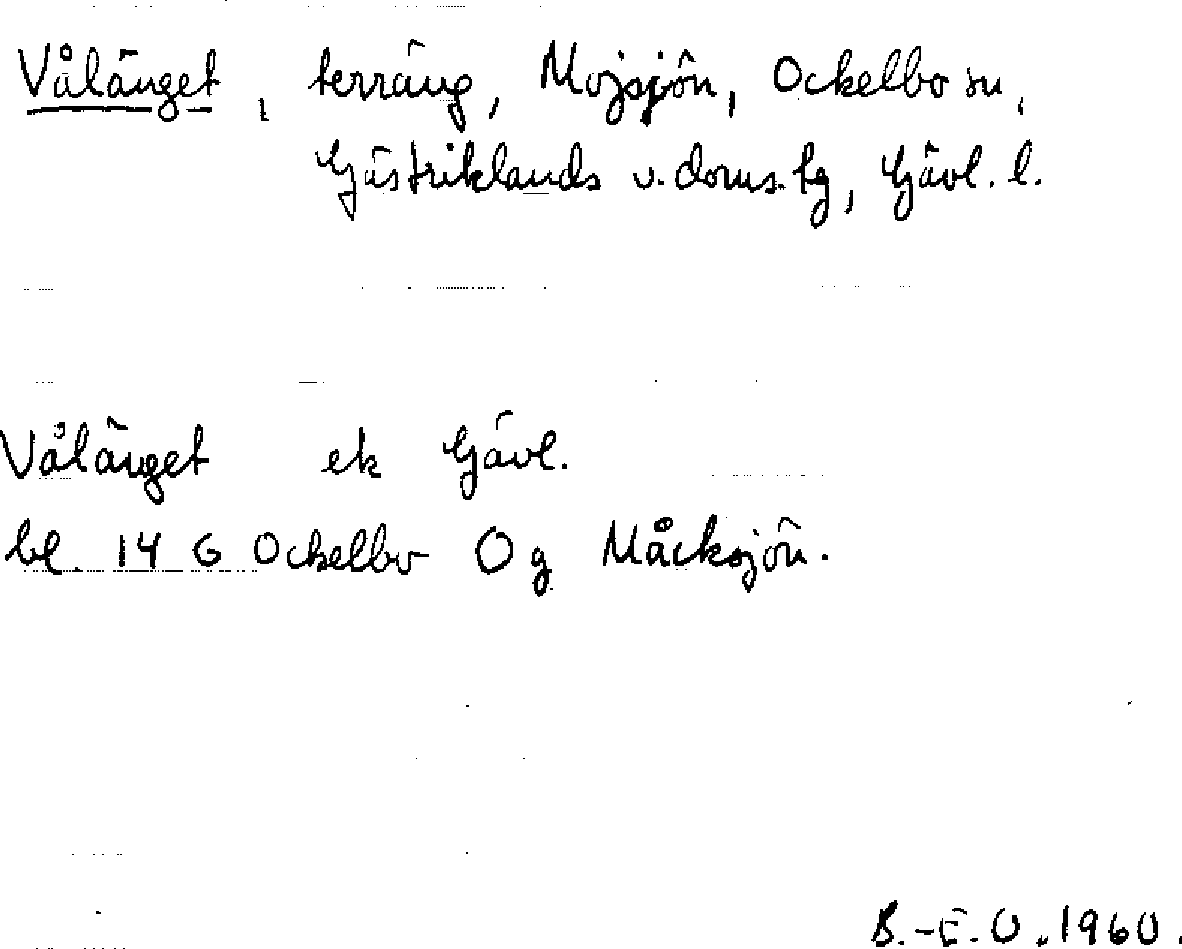 Vålänget, terräng, Mojsjön, Ockelbo sn,
Gästriklands v. doms. tg, Gävl. l.
Vålänget ek Gävl.
bl. 14 G Ockelbo O g Måcksjön.
B.-E. O. 1960.